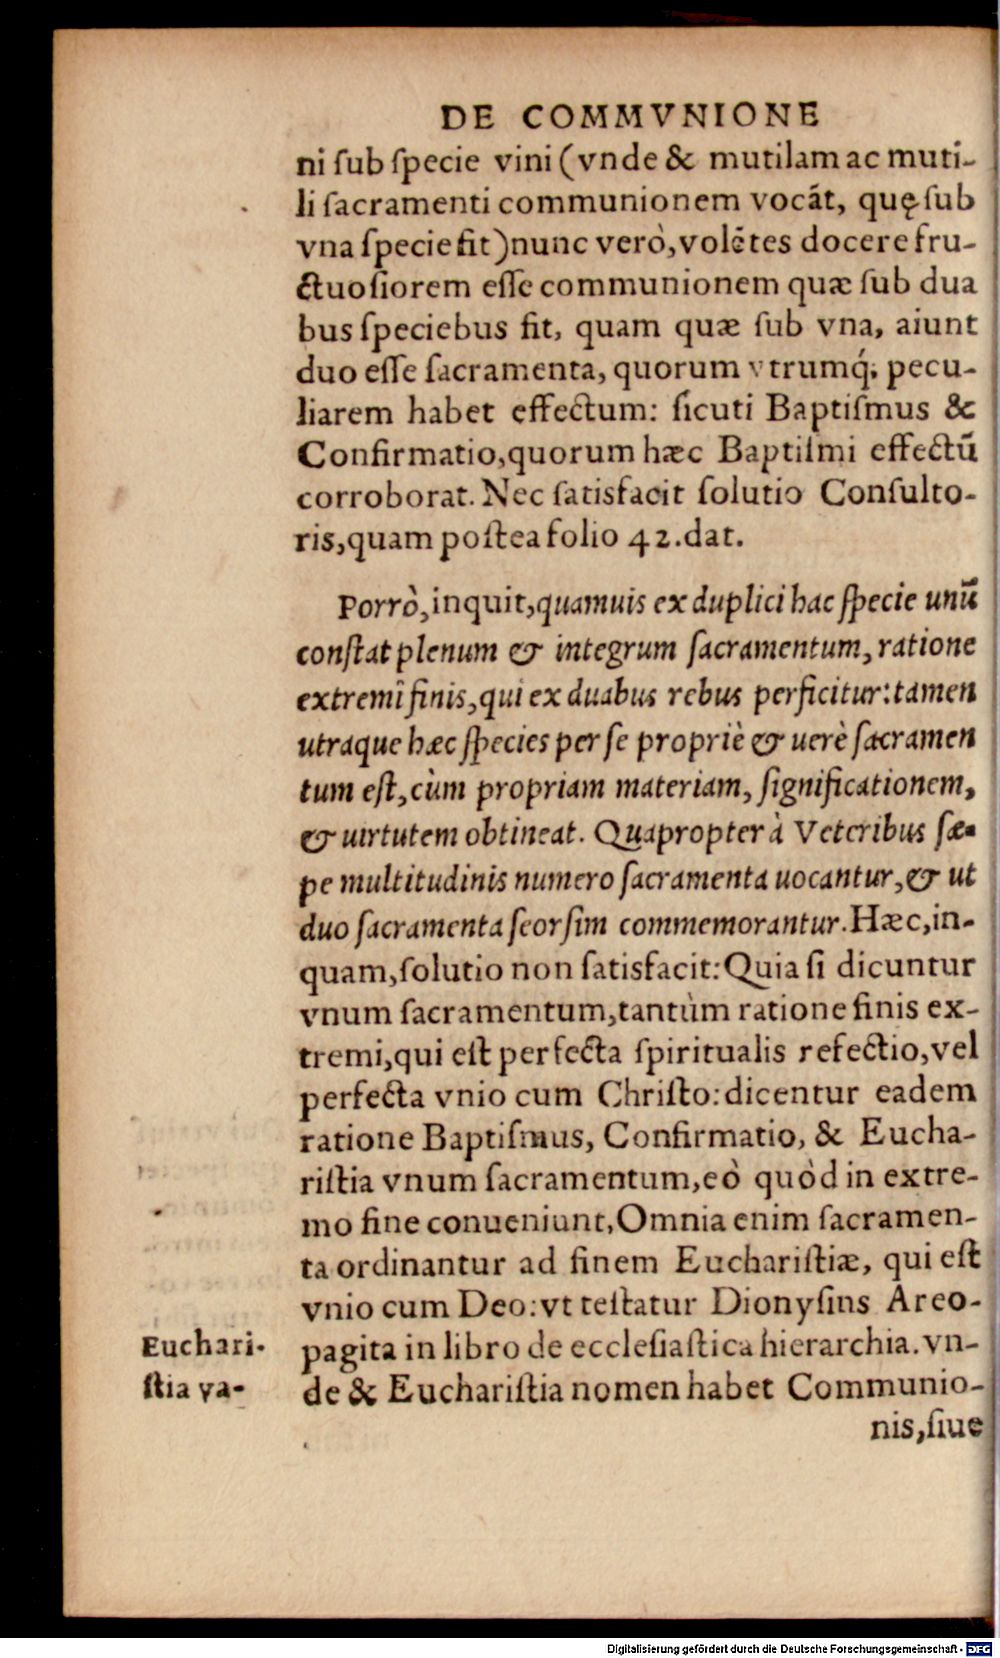 DE COMMVNIONE
ni ſub ſpecie vini (vnde & mutilam ac muti-
li ſacramenti communionem vocãt, quę ſub
vna ſpecie fit) nunc verò, volẽtes docere fru-
ctuoſiorem eſſe communionem quæ ſub dua
bus ſpeciebus fit, quam quæ ſub vna, aiunt
duo eſſe ſacramenta, quorum vtrumq́; pecu-
liarem habet effectum: ſicuti Baptiſmus &
Confirmatio, quorum hæc Baptiſmi effectũ
corroborat. Nec ſatisfacit ſolutio Conſulto-
ris, quam poſtea folio 42. dat.
Porrò, inquit, quamuis ex duplici hac ſpecie unũ
conſtat plenum & integrum ſacramentum, ratione
extremi finis, qui ex duabus rebus perficitur: tamen
utraque hæc ſpecies per ſe propriè & uerè ſacramen
tum eſt, cùm propriam materiam, ſignificationem,
& uirtutem obtineat. Quapropter à Veteribus ſæ-
pe multitudinis numero ſacramenta uocantur, & ut
duo ſacramenta ſeorſim commemorantur. Hæc, in-
quam, ſolutio non ſatisfacit: Quia ſi dicuntur
vnum ſacramentum, tantùm ratione finis ex-
tremi, qui eſt perfecta ſpiritualis refectio, vel
perfecta vnio cum Chriſto: dicentur eadem
ratione Baptiſmus, Confirmatio, & Eucha-
riſtia vnum ſacramentum, eò quòd in extre-
mo fine conueniunt, Omnia enim ſacramen-
ta ordinantur ad finem Euchariſtiæ, qui eſt
vnio cum Deo: vt teſtatur Dionyſius Areo-
pagita in libro de eccleſiaſtica hierarchia. vn-
de & Euchariſtia nomen habet Communio-
nis, ſiue
Euchari-
ſtia va-
Digitalisierung gefördert durch die Deutsche Forschungsgemeinschaft - DFG